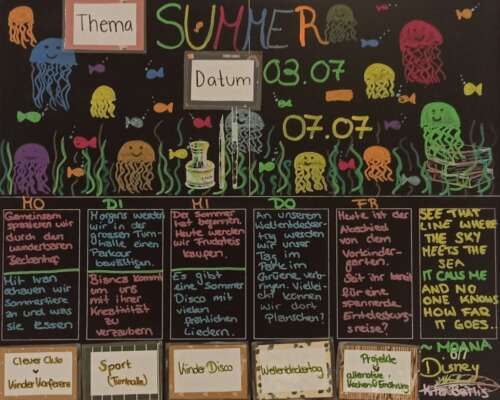 Thema
SUMMER
Datum
03.07
07.07
MO
Gemeinsam
spazieren wir
durch den
wunderbaren
DI
Morgens werden
wir in der
grossen Turn-
halle einen
Parkour
bewältigen.
MI
Der Sommer
hat begonnen.
Heute werden
wir Fruchteis
kaufen.
DO
An unserem
Weltentdecker-
tag werden
wir unser
Tag im
Park im
Grüene verb-
ringen. Viel-
eicht können
wir dort
planschen?
FR
Heute ist der
Abschied
von dem
Vorkinder-
garten.
Seit ihr bereit
für eine
spannende
Entdeckungs-
reise?
SEE THAT
LINE WHERE
THE SKY
MEETS THE
SEA
IT CALLS ME
AND NO
ONE KNOWS
HOW FAR
IT GOES.
~ MOANA
Disney
Mit Ivan
schauen wir
Sommertiere
an und was
sie Essen
Bianca kommt
um uns
mit ihrer
Kreativität
zu
verzaubern.
Es gibt
eine Sommer
Disco mit
vielen
fröhlichen
Liedern.
Clever Club
Kinder Konferenz
Sport
(Turnhalle)
Kinder Disco
Weltentdeckertag
Projekte